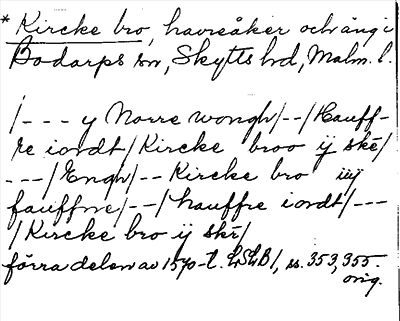 * Kircke bro, havreåker och äng i
Bodarps sn, Skytts hd, Malm. l.
/--- y Norre wongh/--/Hauff-
re iordt/Kircke broo ij skē/
---/Engh/-- Kircke bro iiij
fauffne/--/hauffre iordt/---
/Kircke bro ij skē/
förra delen av 1570-t. LSLB1, ss. 353, 355.
orig.